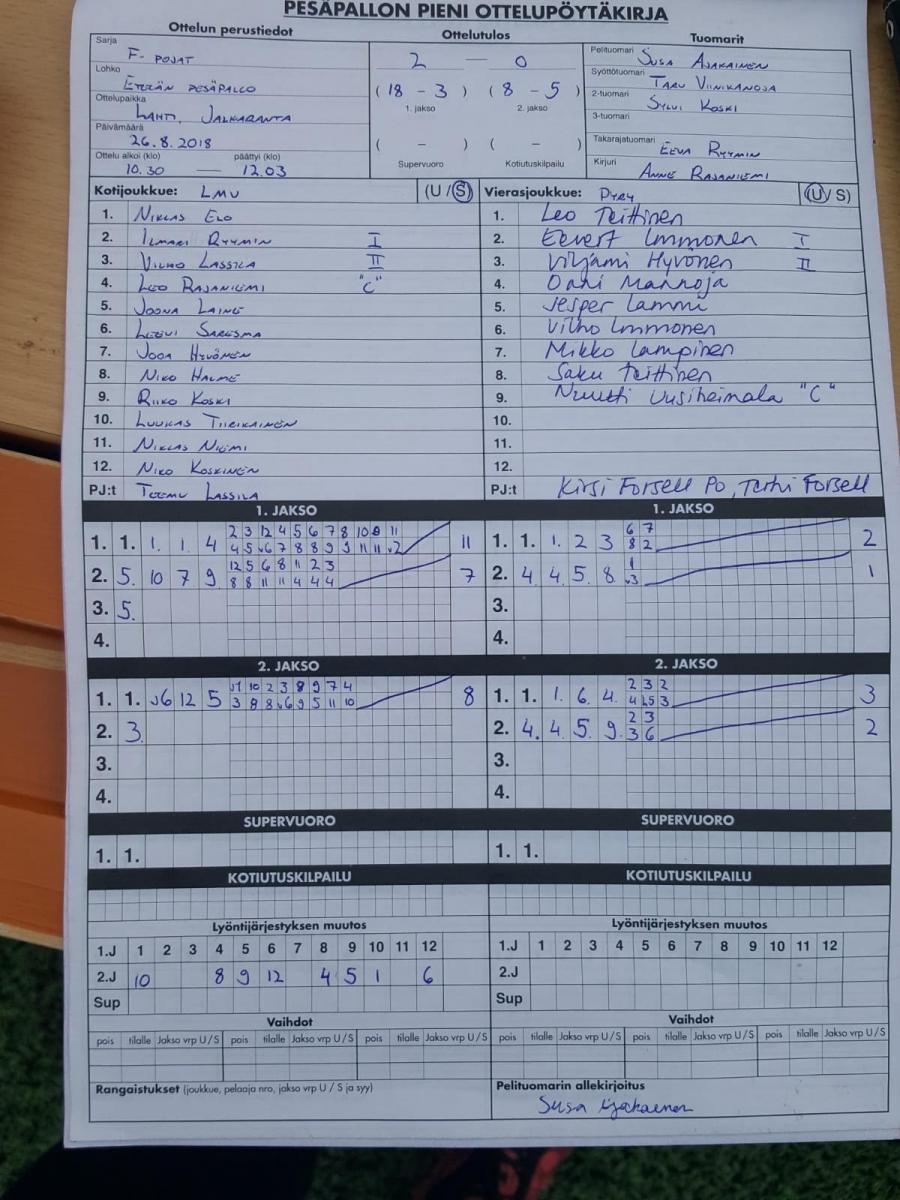 PESÄPALLON PIENI OTTELUPÖYTÄKIRJA
Ottelun perustiedot
Sarja
F-POJAT
Lohko
ETELÄN PESÄPALLO
Ottelupaikka
LAHTI, JALKARANTA
Päivämäärä
26.8.2018
Ottelu alkoi (klo) päättyi (klo)
10.30 — 12.03
Ottelutulos
2 — 0
(18 - 3) (8 - 5)
1. jakso 2. jakso
( - ) ( - )
Supervuoro Kotiutuskilpailu
Tuomarit
Pelituomari SUSA AJAKAINEN
Syöttötuomari TARU VIINIKANOJA
2-tuomari SYLVI KOSKI
3-tuomari
Takarajatuomari EEVA RYYMIN
Kirjuri ANNE RAJANIEMI
Kotijoukkue: LMV (U / S)
1. NIKLAS ELO
2. ILMARI RYYMIN I
3. VILHO LASSILA II
4. LEO RAJANIEMI "C"
5. JOONA LAINE
6. LEEVI SARESMA
7. JOOA HYVÖNEN
8. NIKO HALME
9. RIIKO KOSKI
10. LUUKAS TIIRIKAINEN
11. NIKLAS NIEMI
12. NIKO KOSKINEN
PJ:t TEEMU LASSILA
Vierasjoukkue: PYRY (U / S)
1. Leo Teittinen
2. Eevert Immonen I
3. Viljami Hyvönen II
4. Oani Mannoja
5. Jesper Lammi
6. Vilho Immonen
7. Mikko Lampinen
8. Saku Teittinen
9. Nuutti Uusiheimala "C"
10.
11.
12.
PJ:t Kirsi Forsell PO, Terhi Forsell
1. JAKSO
1. 1. 1. 1. 4 2 3 12 4 5 6 7 8 10 9 11
4 5 v6 7 8 8 9 9 11 11 v2 11
2. 5. 10 7 9 12 5 6 8 11 2 3
8 8 11 11 4 4 4 7
3. 5.
4.
1. JAKSO
1. 1. 1. 2 3 6 7
8 2 2
2. 4 4 5. 8 1
v3 1
3.
4.
2. JAKSO
1. 1. v6 12 5 v1 10 2 3 8 9 7 4
3 8 8 v6 9 5 11 10 8
2. 3.
3.
4.
2. JAKSO
1. 1. 1. 6 4. 2 3 2
4 v5 3 3
2. 4. 4 5. 9. 2 3
3 6 2
3.
4.
SUPERVUORO
1. 1.
SUPERVUORO
1. 1.
KOTIUTUSKILPAILU
KOTIUTUSKILPAILU
Lyöntijärjestyksen muutos
1.J 1 2 3 4 5 6 7 8 9 10 11 12
2.J 10 8 9 12 4 5 1 6
Sup
Lyöntijärjestyksen muutos
1.J 1 2 3 4 5 6 7 8 9 10 11 12
2.J
Sup
Vaihdot
pois tilalle Jakso vrp U/S pois tilalle Jakso vrp U/S pois tilalle Jakso vrp U/S
Vaihdot
pois tilalle Jakso vrp U/S pois tilalle Jakso vrp U/S pois tilalle Jakso vrp U/S
Rangaistukset (joukkue, pelaaja nro, jakso vrp U / S ja syy)
Pelituomarin allekirjoitus
Susa Ajakainen